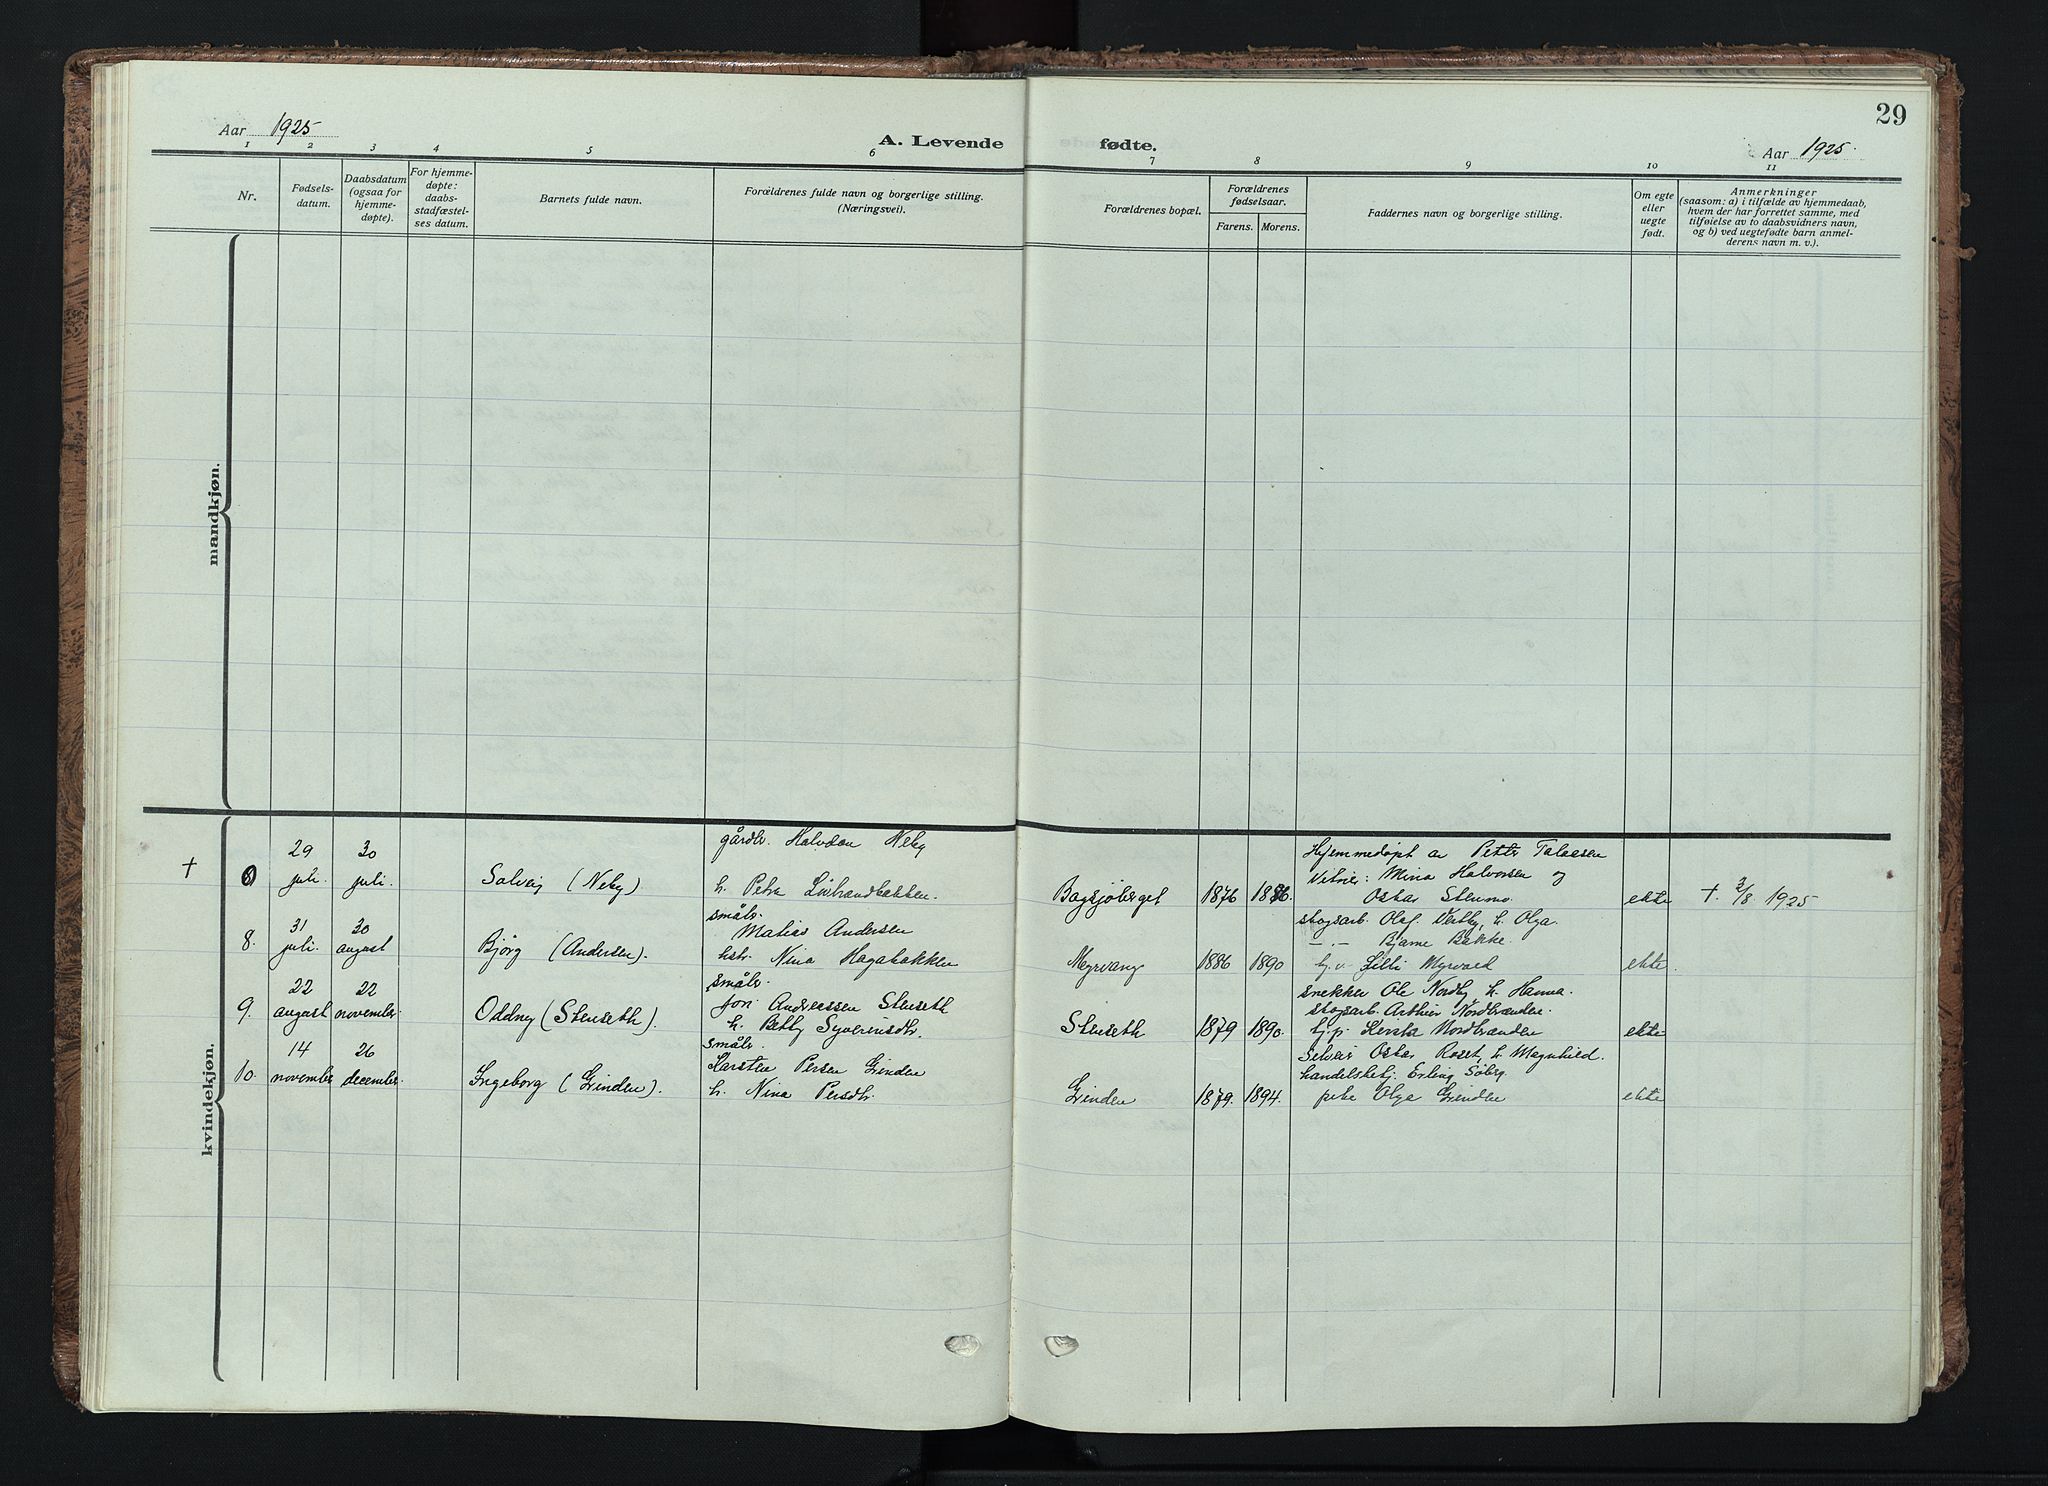 29
Aar 1925
A. Levende fødte.
Aar 1925.
1 2 3 4 5 6 7 8 9 10 11
Nr.
Fødsels-
datum.
Daabsdatum
(ogsaa for
hjemme-
døpte).
For hjemme-
døpte:
daabs-
stadfæstel-
ses datum.
Barnets fulde navn.
Forældrenes fulde navn og borgerlige stilling.
(Næringsvei).
Forældrenes bopæl.
Forældrenes
fødselsaar.
Farens. Morens.
Faddernes navn og borgerlige stilling.
Om egte
eller
uegte
født.
Anmerkninger
(saasom: a) i tilfælde av hjemmedaab,
hvem der har forrettet samme, med
tilføielse av to daabsvidners navn,
og b) ved uegtefødte barn anmel-
derens navn m. v.).
mandkjøn.
kvindekjøn.
29 30 gårdbr. Halvdan Neby Hjemmedøpt av Petter
+ juli. juli. Solveig (Neby). h. Petra Bagsjøberget 1876 Vitner: Mina Halvorsen og
Oskar Stenmo. ekte + 3/8 1925
31 30 småbr. Matias Andersen skogsarb. Olaf h. Olga
8. juli. august Bjørg (Andersen). hstr. Nina Hagabakken Myrvang 1886 1890 -,,- Bjarne Bakke.
Lilli Myrvold ekte.
22 22 småbr. Jon Andreassen Stenseth snekker Ole Nordby h. Hanna.
9. august november Oddny (Stenseth). h. Betty Syverinsdtr. Stenseth 1879 1890. skogsarb. Arthur Nordbrænden.
Nordbrænden ekte
14 26 småbr. Karsten Persen Grinden Oskar Roset, h. Magnhild.
10. november december. Ingeborg (Grinden). h. Nina Persdtr. Grinden 1879. 1894. handelsbetj. Erling Søberg
pike Olga Grinden ekte